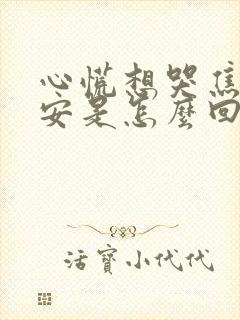 心慌想哭焦
安是怎麼回
活寶小代代